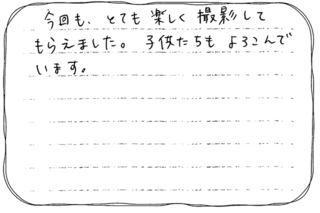 今回も、とても楽しく撮影して
もらえました。子供たちもよろこんで
います。